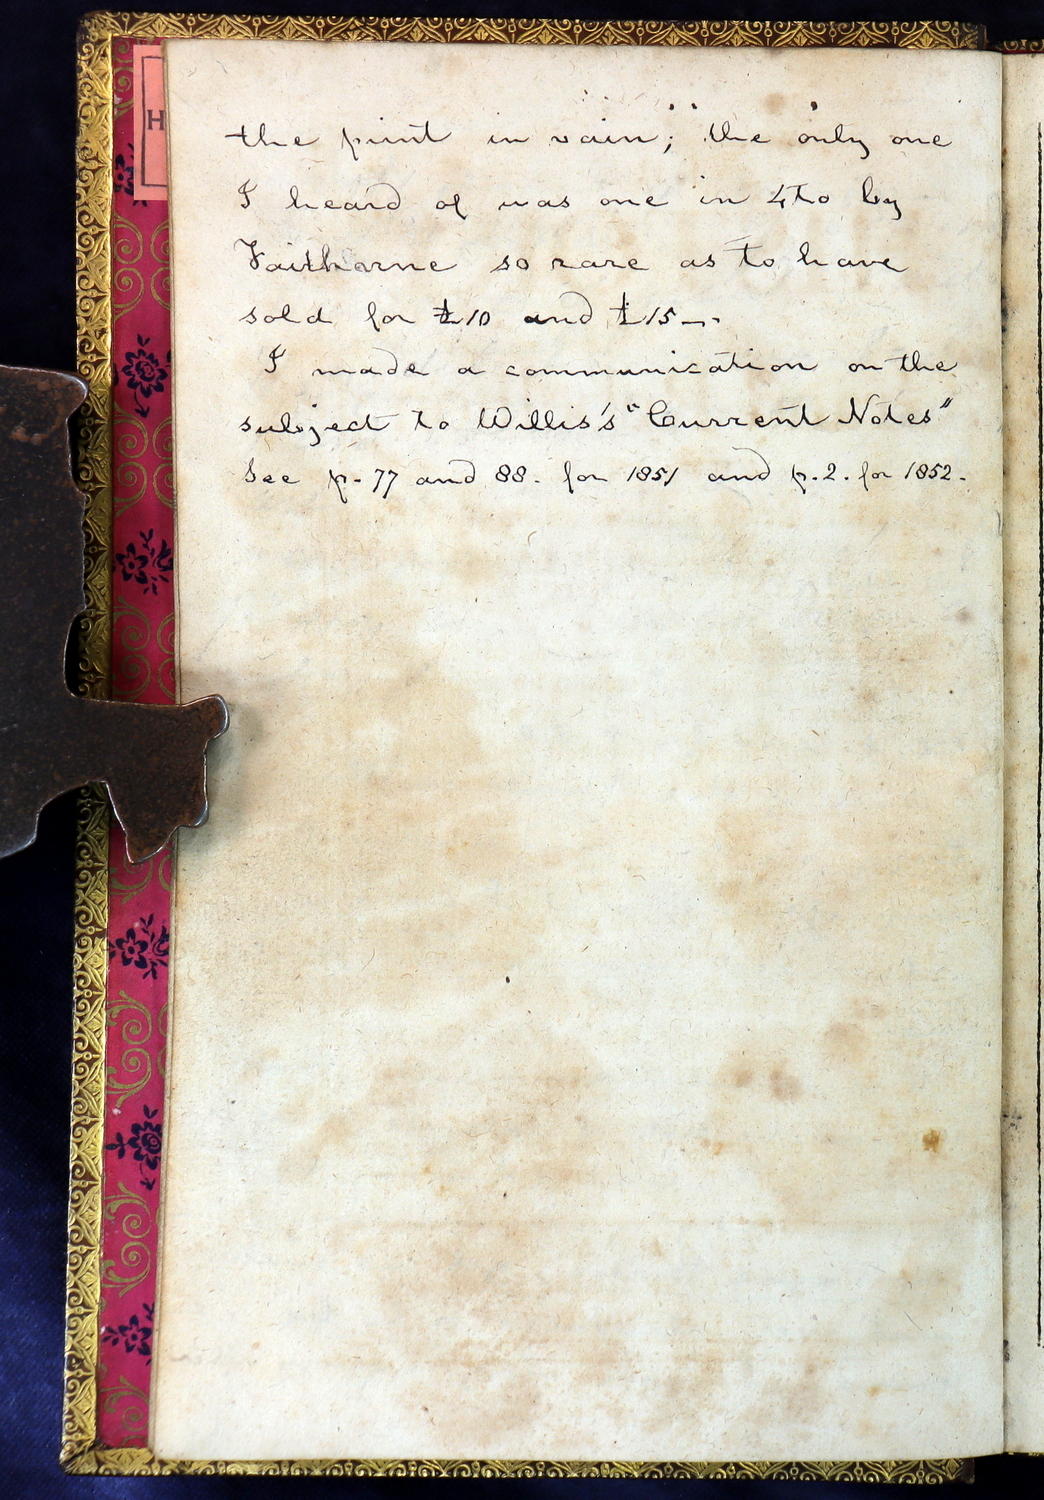 H
the print in vain; the only one
I heard of was one in 4to by
Faithorne so rare as to have
sold for £10 and £15—.
I made a communication on the
subject to Willis's "Current Notes"
See p. 77 and 88. for 1851 and p. 2. for 1852.